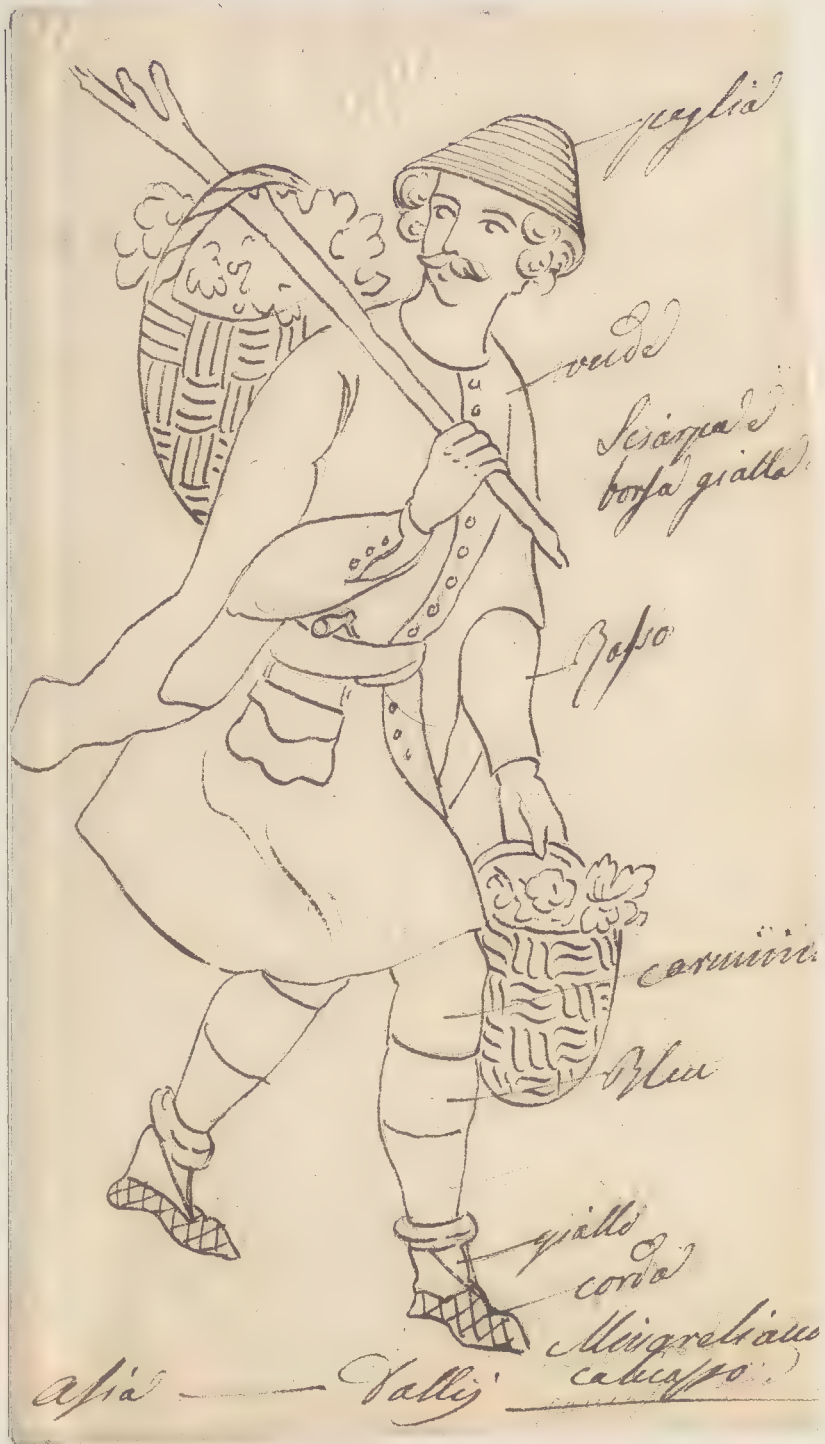 paglia
verde
Sciarpa e
borsa gialla
Rosso
carmin
Bleu
giallo
corda
Mingreliano
caucasso
Asia — Vallij